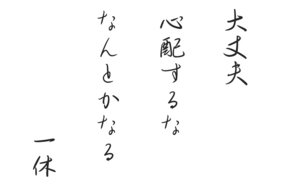 大丈夫
心配するな
なんとかなる
一休